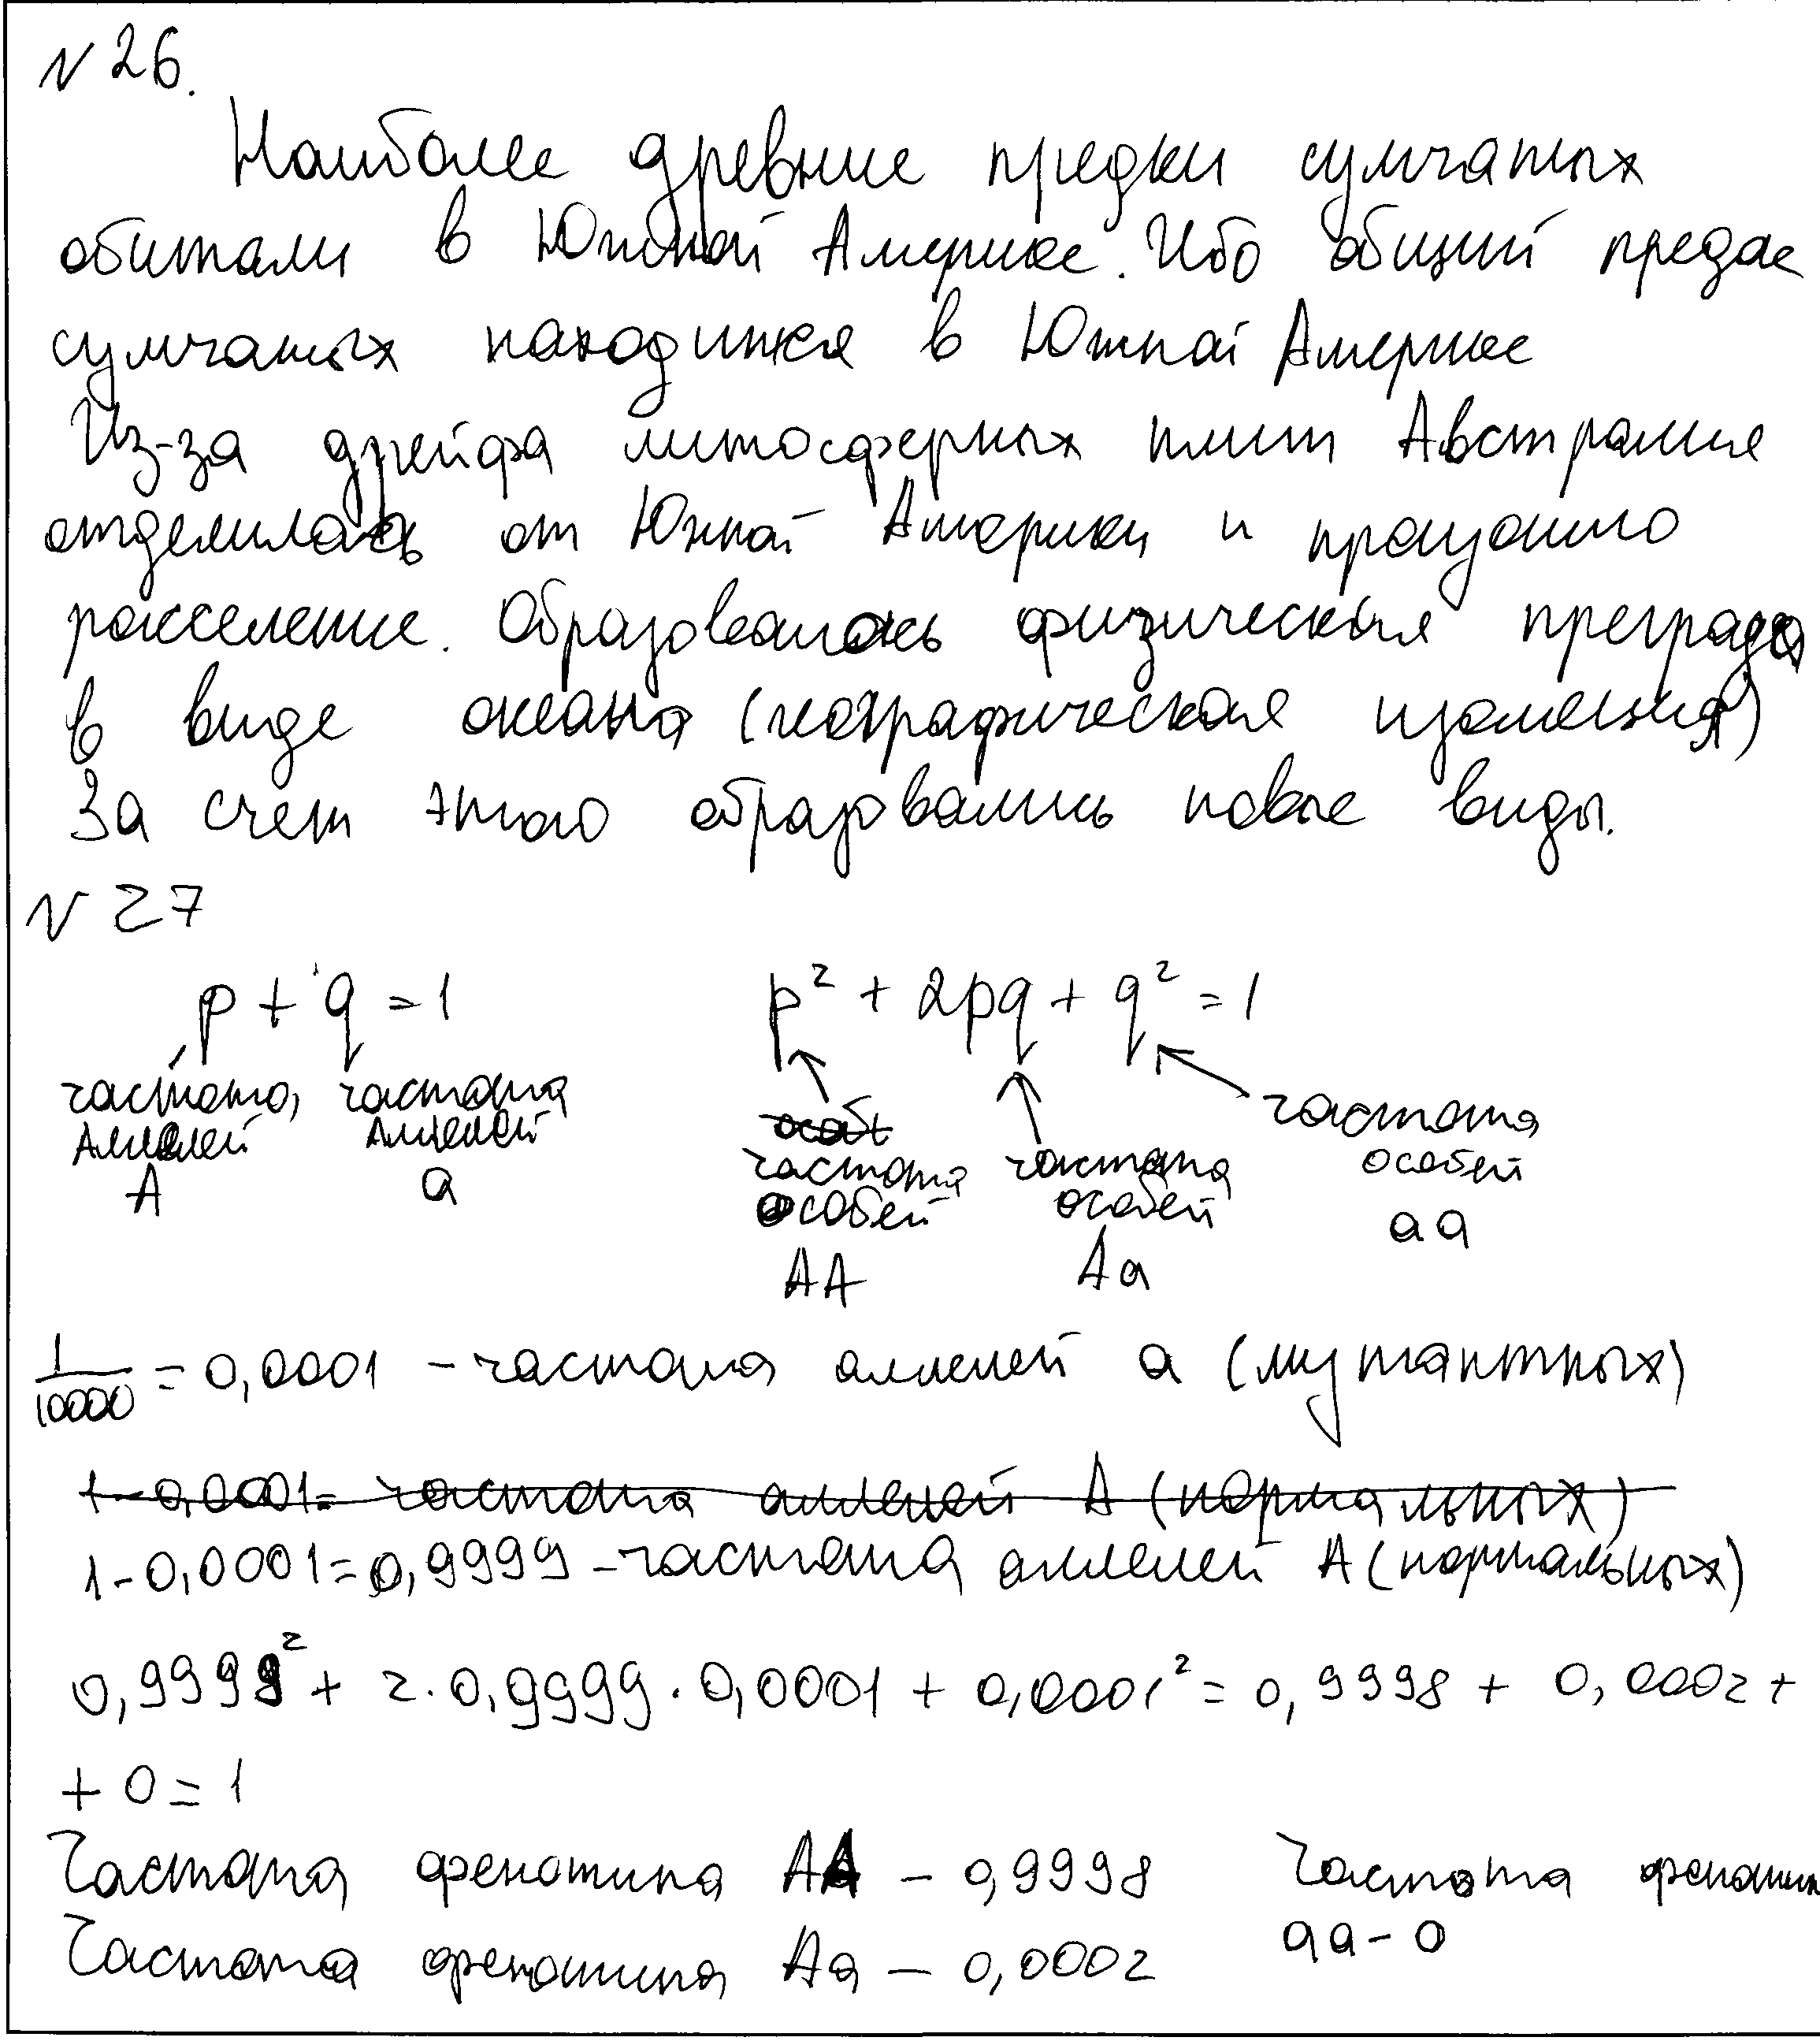 № 26.
Наиболее древние предки сумчатых
обитали в Южной Америке. Ибо общий предок
сумчатых находится в Южной Америке
Из-за дрейфа литосферных плит Австралия
отделилась от Южной Америки и произошло
расселение. Образовалась физическая преграда
в виде океана (географическая изоляция)
За счет этого образовались новые виды.
№ 27
p + q = 1 p² + 2pq + q² = 1
частота аллелей A
частота аллелей a
особ
частота особей AA
частота особей Aa
частота особей aa
1/10000 = 0,0001 – частота аллелей a (мутантных)
1 – 0,0001 = частота аллелей A (нормальных)
1 – 0,0001 = 0,9999 – частота аллелей A (нормальных)
0,9999² + 2·0,9999·0,0001 + 0,0001² = 0,9998 + 0,0002 +
+ 0 = 1
Частота фенотипа AA – 0,9998
Частота фенотипа Aa – 0,0002
Частота фенотип
aa – 0